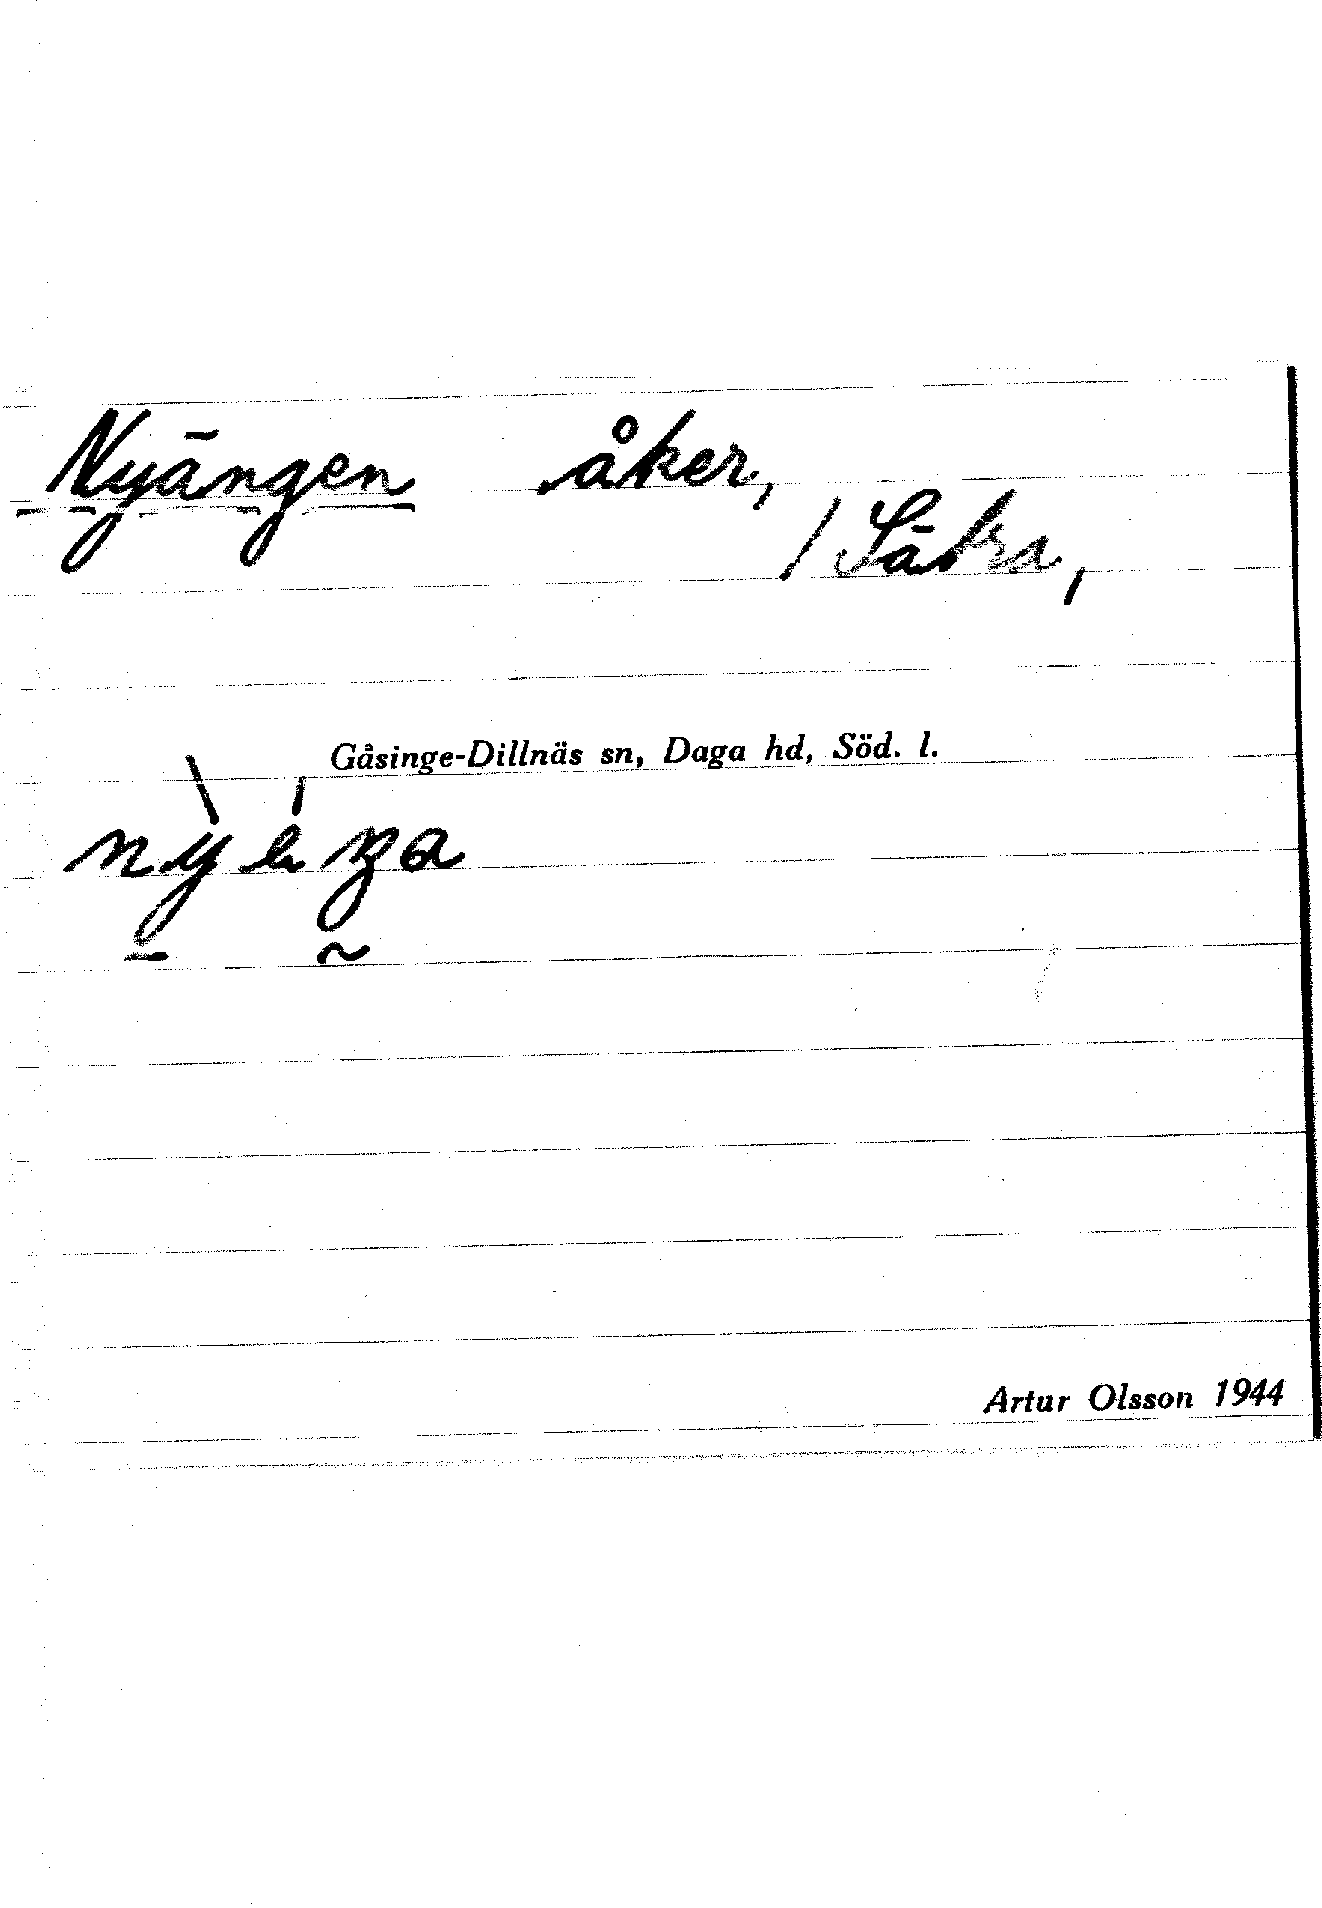 Nyängen åker,
/ Sätra,
Gåsinge-Dillnäs sn, Daga hd, Söd. l.
Artur Olsson 1944